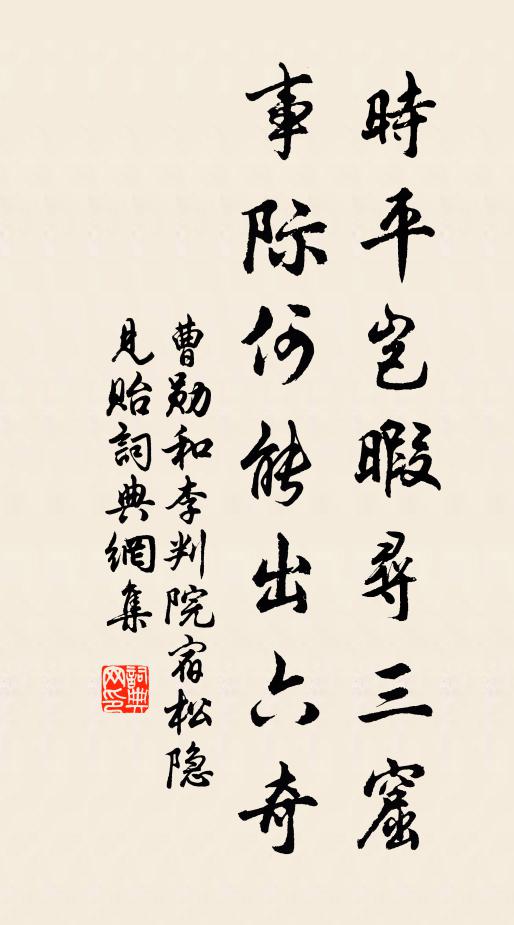 時平岂暇尋三窟
事际何能出六奇
曹勋和李判院宿松隐
見贻詞典網集
詞典网印